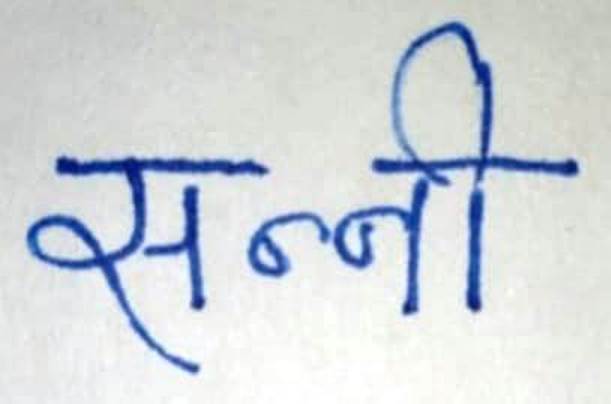 सन्नी